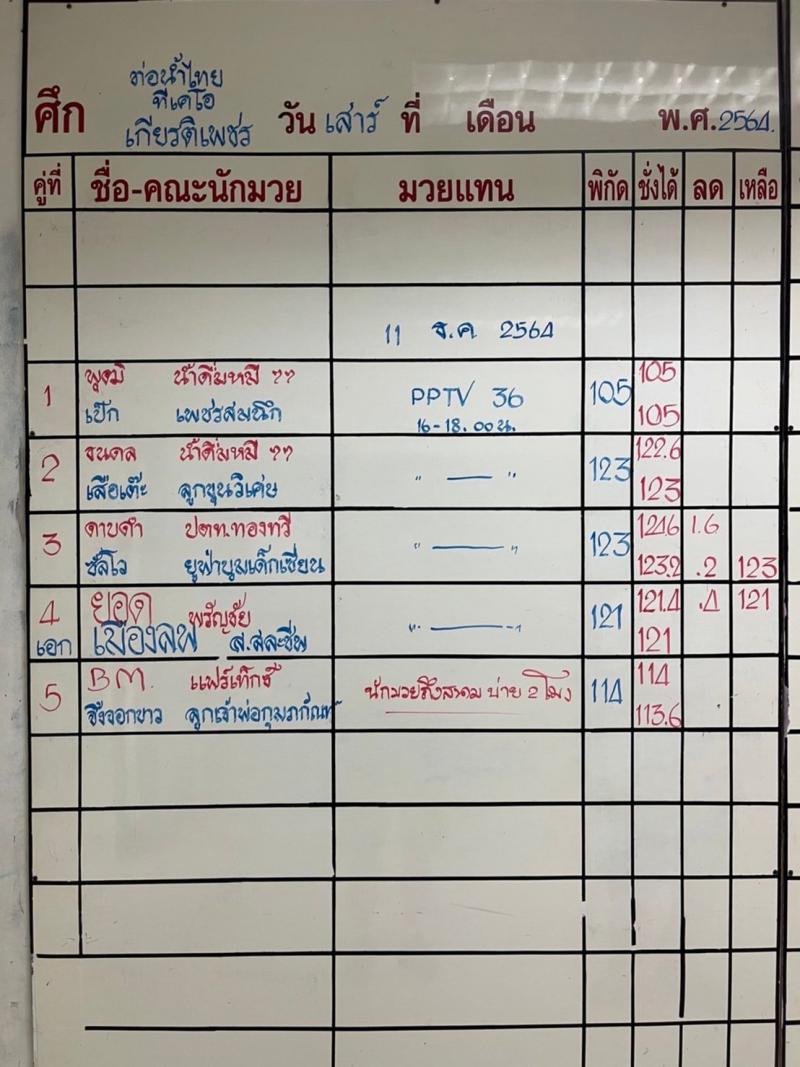 ศึก ท่อน้ำไทย ทีเคโอ เกียรติเพชร วัน เสาร์ ที่ เดือน พ.ศ. 2564.
คู่ที่ ชื่อ-คณะนักมวย มวยแทน พิกัด ชั่งได้ ลด เหลือ
11 ธ.ค. 2564
1 น้ำดื่มหมี ?? PPTV 36 105 105
เป๊ก เพชรสมนึก 16-18.00 น. 105
2 น้ำดื่มหมี ?? " — " 123 122.6
เสือเต๊ะ 123
3 ดาบดำ ปตท.ทองทวี " — " 123 124.6 1.6
123.2 .2 123
4 ยอด ขวัญชัย " — " 121 121.4 .4 121
เอก เมืองลพ ส.สละชีพ 121
5 B.M. แฟร์เท็กซ์ นักมวยถึงสนาม บ่าย 2 โมง 114 114
จิ้งจอกขาว ลูกเจ้าพ่อกุมภภัณฑ์ 113.6